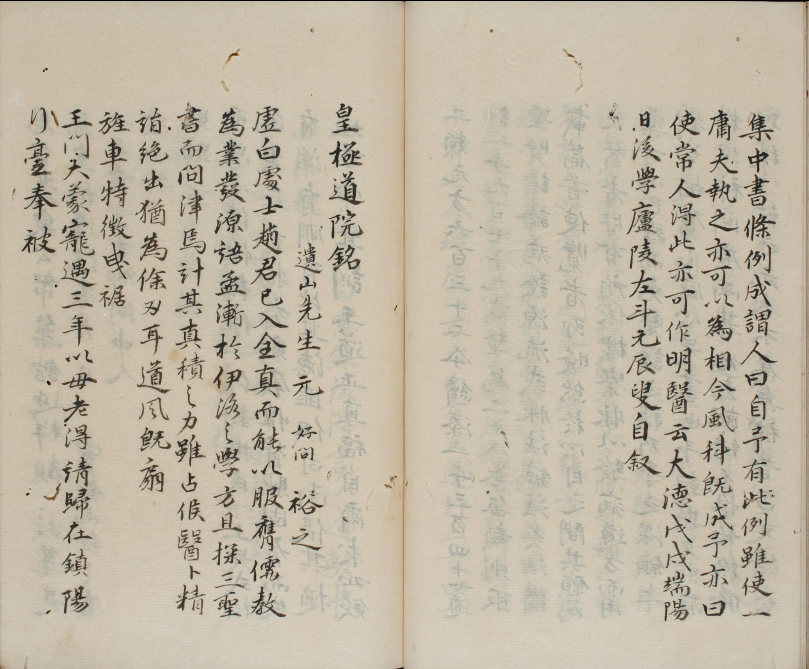 集中書條例成謂人曰自予有此例雖使一
庸夫執之亦可以為相今風科既成予亦曰
使常人得此亦可作明醫云大德戊戌端陽
日後學廬陵左斗元辰叟自叙
皇極道院銘
遺山先生元好問裕之
虛白處士趙君已入全真而能以服膺儒教
為業發源語孟漸於伊洛之學方且探三聖
書而問津焉計其真積之力雖占候醫卜精
詣絕出猶為餘刃耳道風既扇
旌車特徵曳裾
王門大蒙寵遇三年以母老得請歸在鎮陽
以臺奉被